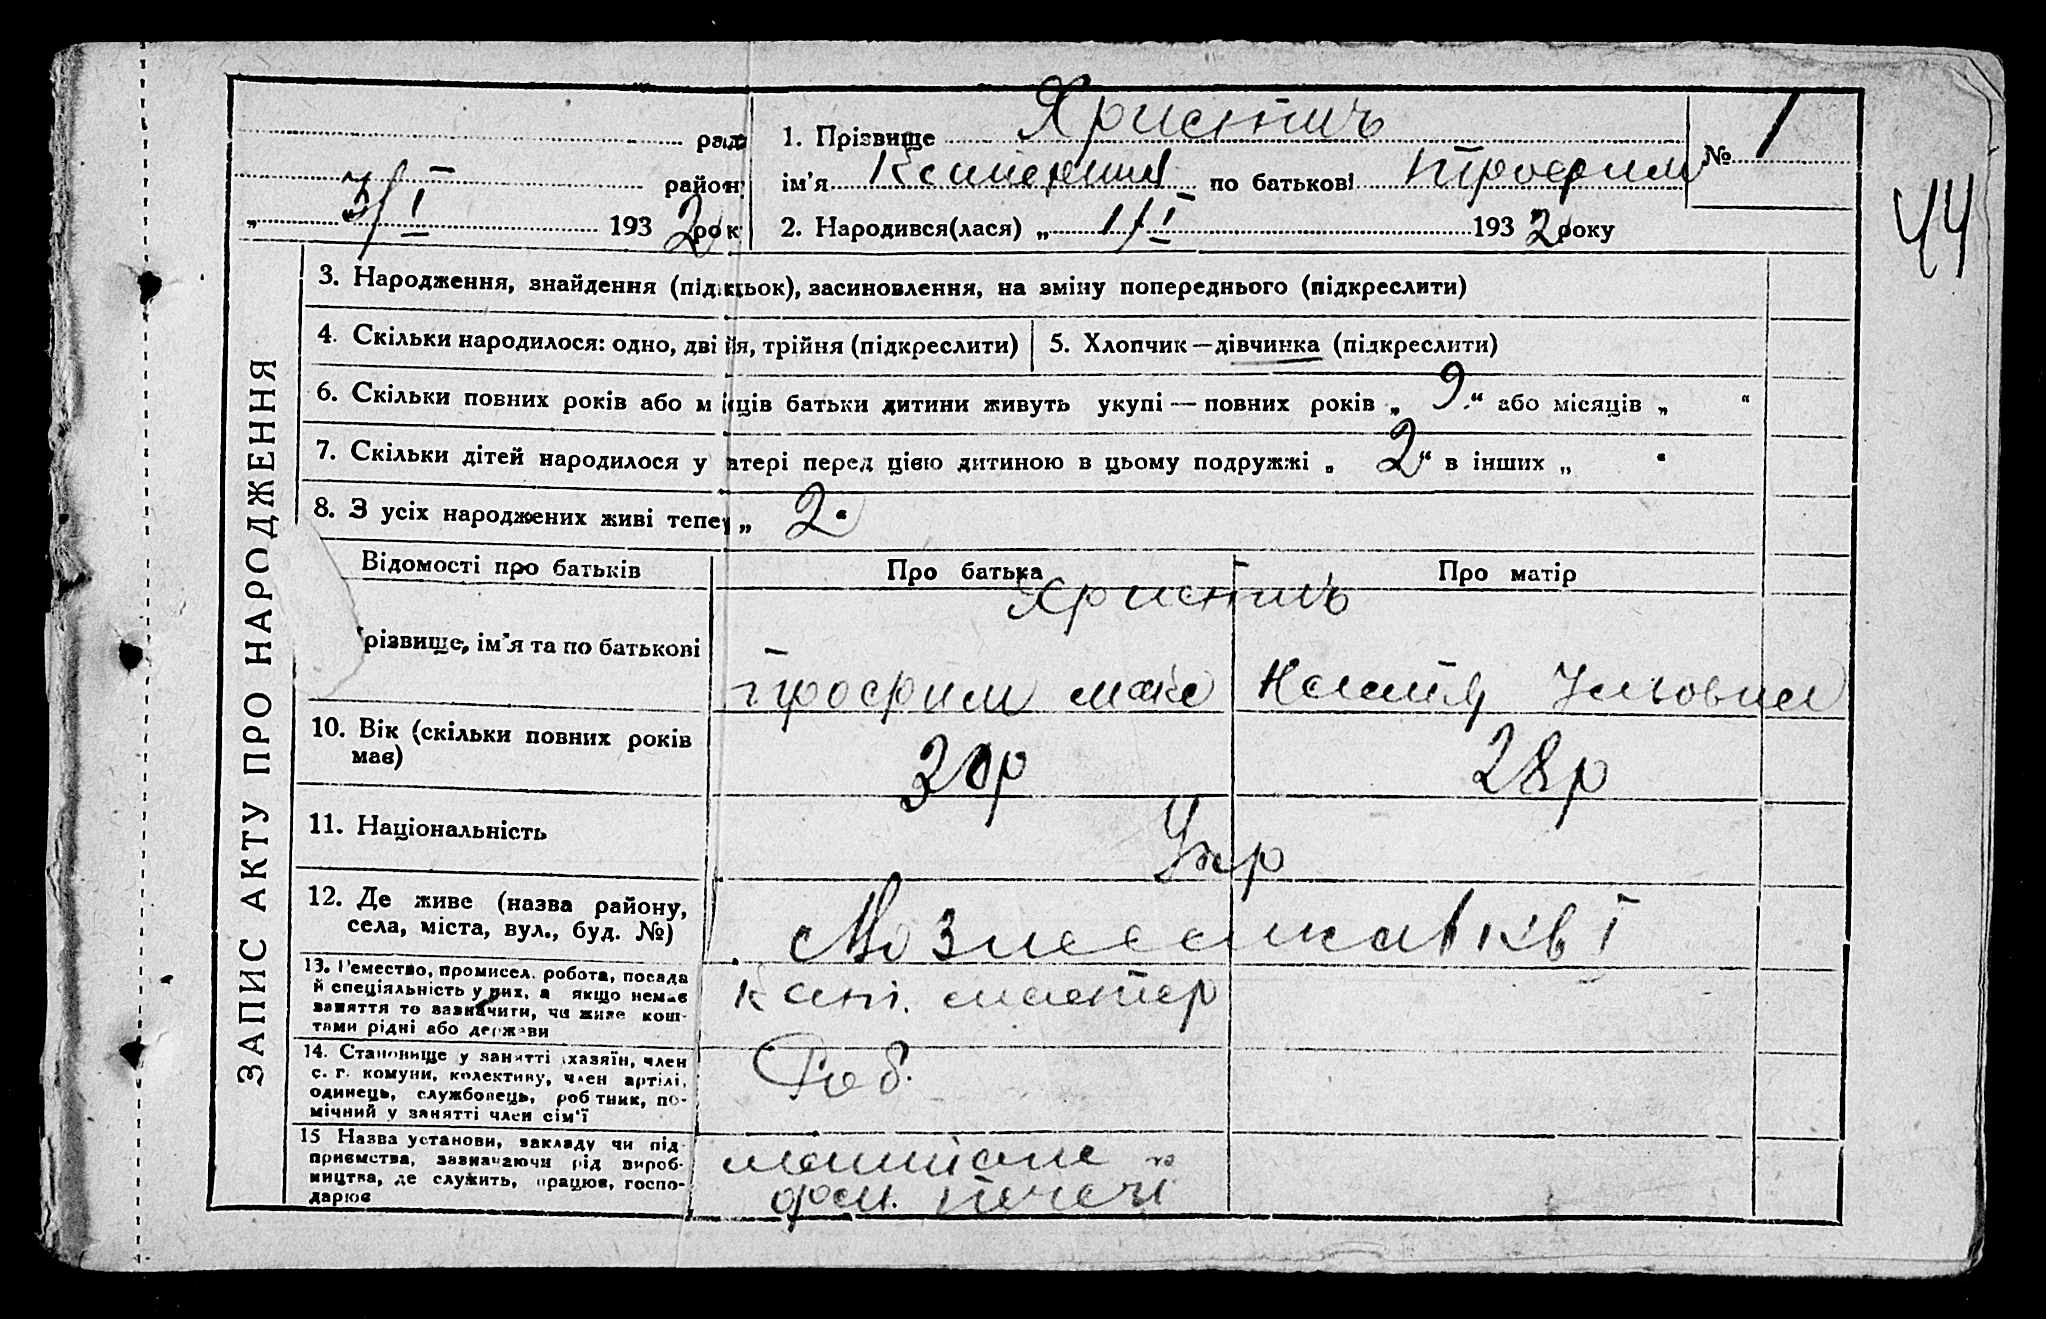 рад
район
3/I 1932 рок
1. Прізвище Христич
ім'я Катерина по батькові Трофим
2. Народився(лася) „ 1/I 1932 року
№ 1
44
ЗАПИС АКТУ ПРО НАРОДЖЕННЯ
3. Народження, знайдення (під.кдьок), засиновлення, на зміну попереднього (підкреслити)
4. Скільки народилося: одно, дві йя, трійня (підкреслити)
5. Хлопчик—дівчинка (підкреслити)
6. Скільки повних років або м яців батьки дитини живуть укупі — повних років „ 9 “ або місяців „ “
7. Скільки дітей народилося у атері перед цією дитиною в цьому подружжі „ 2 “ в інших „ “
8. З усіх народжених живі тепер „ 2 “
Відомості про батьків
Про батька
Про матір
різвище, ім'я та по батькові
Христич
Трофим
10. Вік (скільки повних років
має)
30р
28р
11. Національність
Укр
12. Де живе (назва району,
села, міста, вул., буд. №)
13. Ремество, промисел. робота, посада
й спеціяльність у них, а якщо немає
заняття то зазначити, чи живе кош-
тами рідні або держави
майстер
14. Становище у занятті хазяїн, член
с. г. комуни, колективу, член артілі,
одинець, службовець, роб тник, по-
мічний у занятті член сім'ї
Роб.
15 Назва установи, закладу чи під-
приємства, зазначаючи рід вироб-
ництва, де служить, працює, госпо-
дарює
печечі